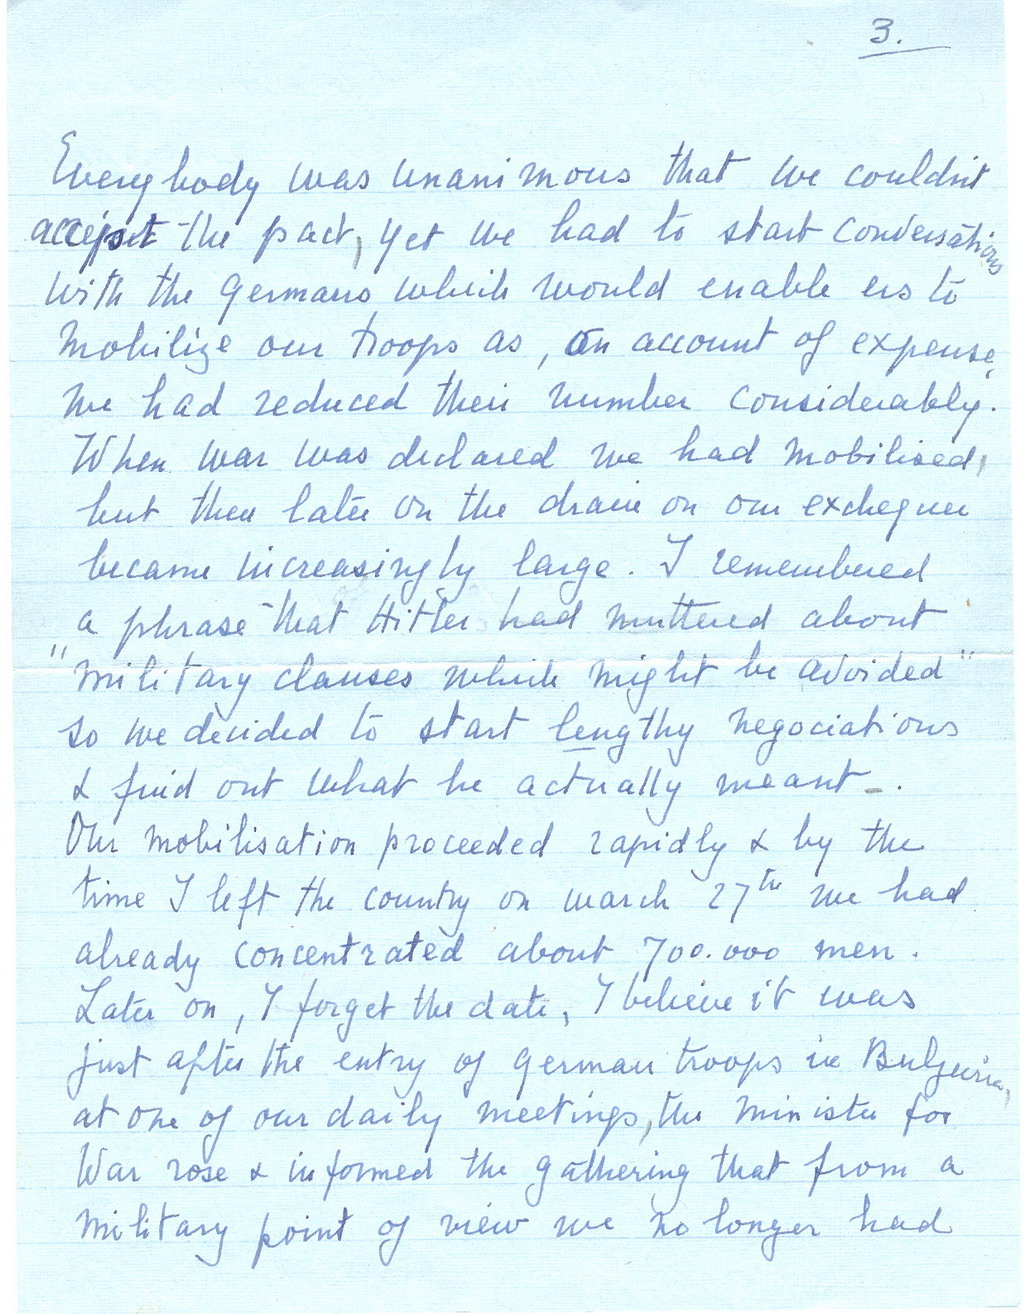 3.
Everybody was unanimous that we couldn't
accept the pact, yet we had to start conversations
with the Germans which would enable us to
mobilize our troops as, on account of expense,
we had reduced their number considerably.
When war was declared we had mobilised,
but then later on the drain on our exchequer
became increasingly large. I remembered
a phrase that Hitler had muttered about
"military clauses which might be avoided"
so we decided to start lengthy negociations
& find out what he actually meant -.
Our mobilisation proceeded rapidly & by the
time I left the country on march 27th we had
already concentrated about 700.000 men.
Later on, I forget the date, I believe it was
just after the entry of German troops in Bulgaria,
at one of our daily meetings, the Minister for
War rose & informed the gathering that from a
military point of view we no longer had